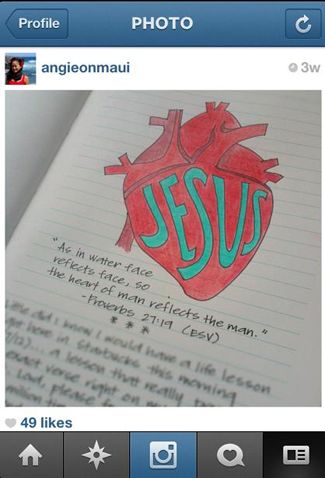 Profile
PHOTO
angieonmaui
3w
JESUS
"As in water face
reflects face, so
the heart of man reflects the man."
-Proverbs 27:19 (ESV)
* * *
did I know I would have a life lesson
here in Starbucks this morning
a lesson that really
exact verse right on
Lord, please
49 likes